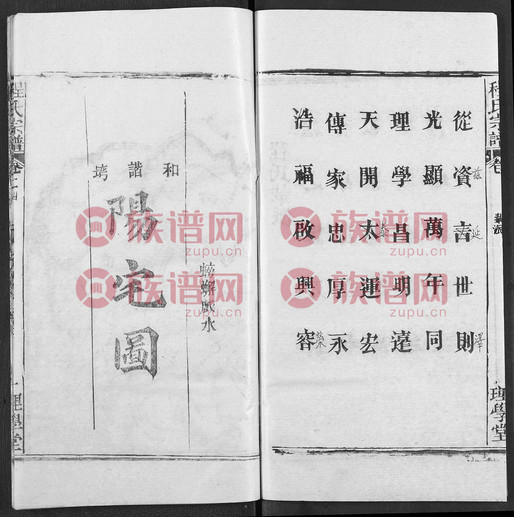 程氏宗譜
卷
理學堂
從資言世則
光顯萬年同
理學昌明遠
天開太運宏
傳家忠厚永
浩福啟興容
延
澤
和諧塆
陽宅圖
水
程氏宗譜
卷
理學堂
族谱网
zupu.cn
族谱网
zupu.cn
族谱网
zupu.cn
族谱网
zupu.cn